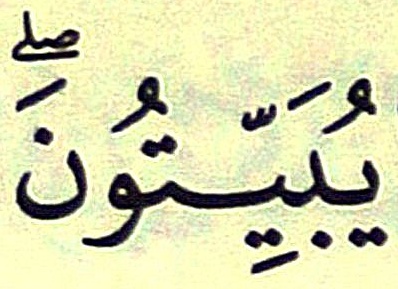 يُبَيِّتُونَۖ